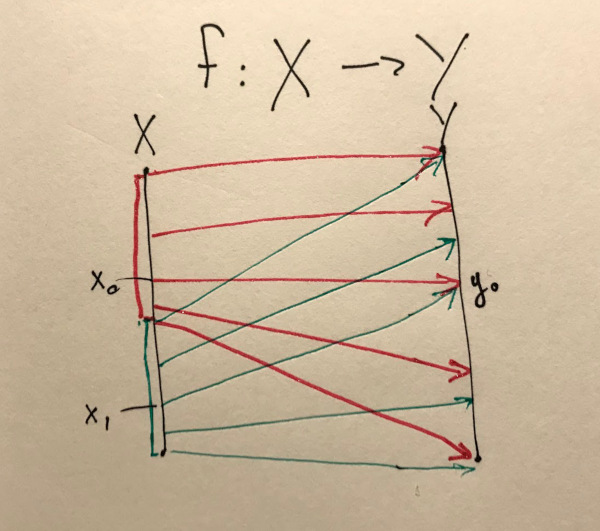 f: X → Y
X Y
x₀ y₀
x₁